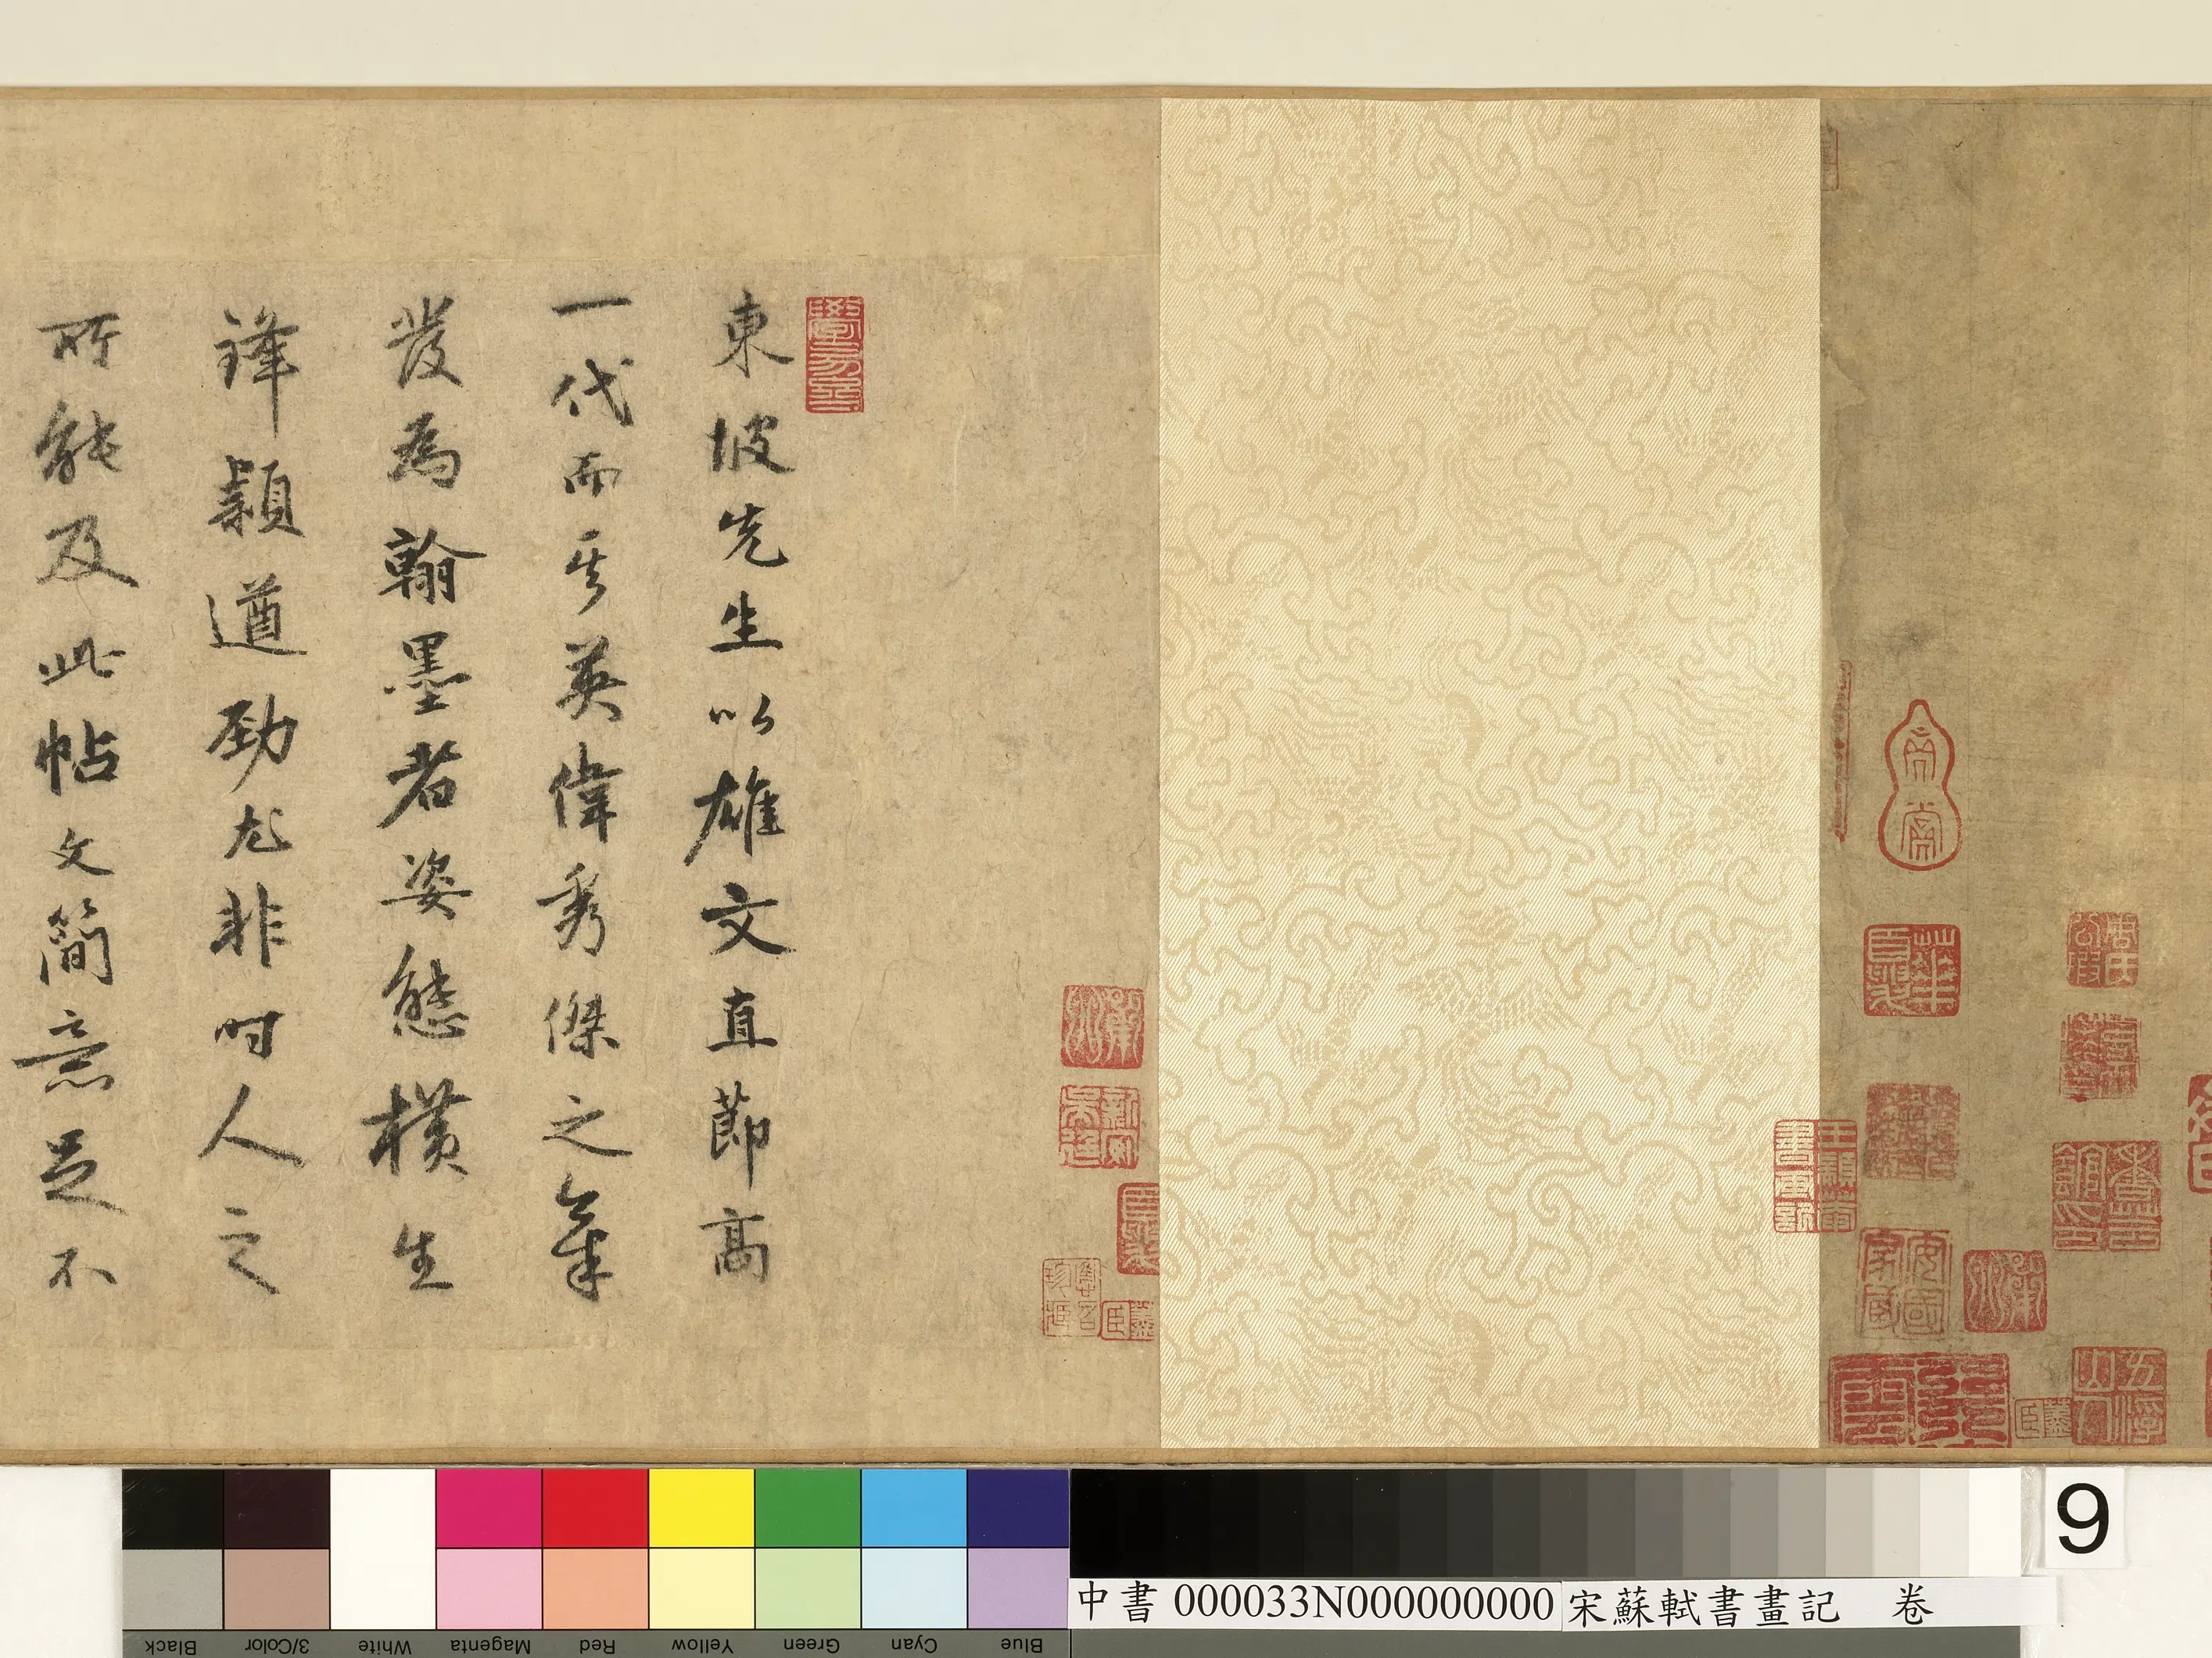 東坡先生以雄文直節高
一代而其英偉秀傑之氣
發為翰墨者姿態橫生
鋒穎遒勁尤非時人之
所能及此帖文簡意足不
學易齋
安國家藏
Black
3/Color
White
Magenta
Red
Yellow
Green
Cyan
Blue
9
中書 000033N000000000 宋蘇軾書畫記 卷